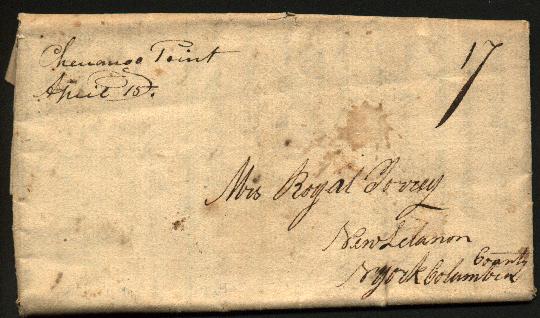 Chenango Point
April 15.
17
Mrs Royal Torrey
New Lebanon
County
NYork Columbia